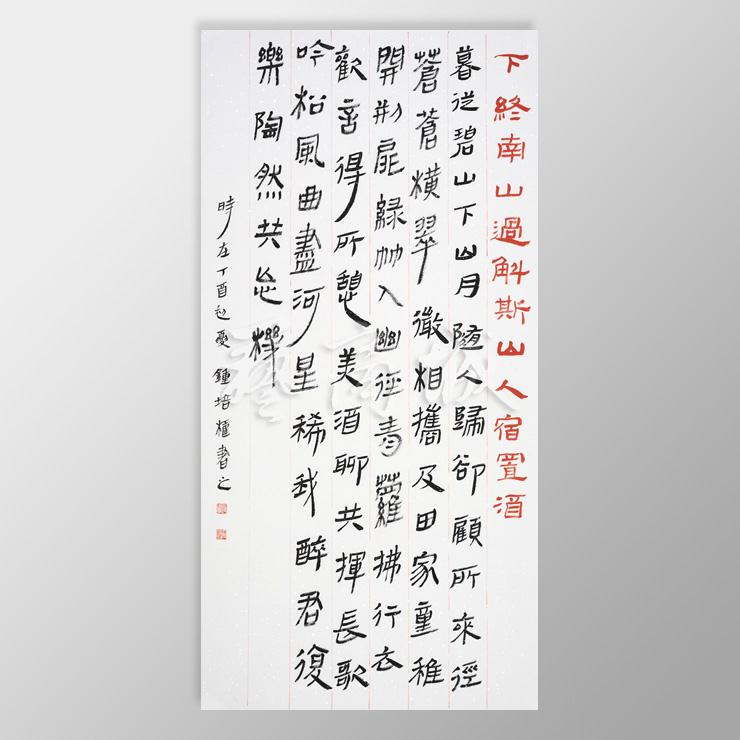 下終南山過斛斯山人宿置酒
暮從碧山下山月隨人歸卻顧所來徑
蒼蒼橫翠微相攜及田家童稚
開荊扉綠竹入幽徑青蘿拂行衣
歡言得所憩美酒聊共揮長歌
吟松風曲盡河星稀我醉君復
樂陶然共忘機
時在丁酉初夏 鍾培書之